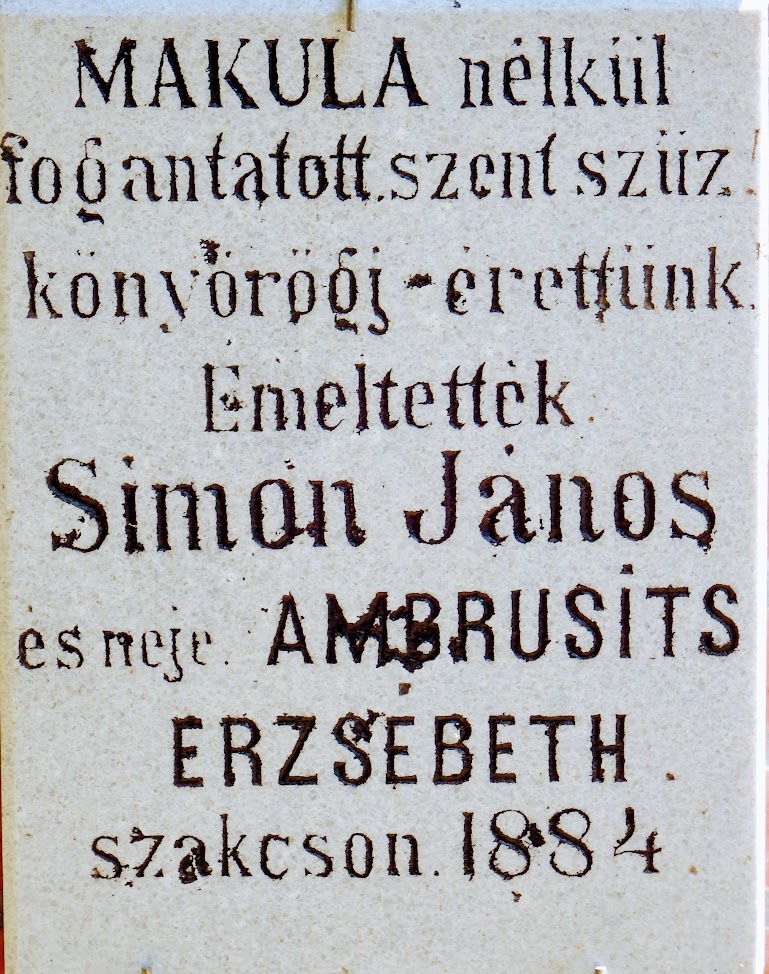 MAKULA nélkül
fogantatott.szent szüz.
könyörögj-érettünk.
Emeltették.
Simon János
es neje. AMBRUSITS
ERZSÉBETH.
szakcson.1884.